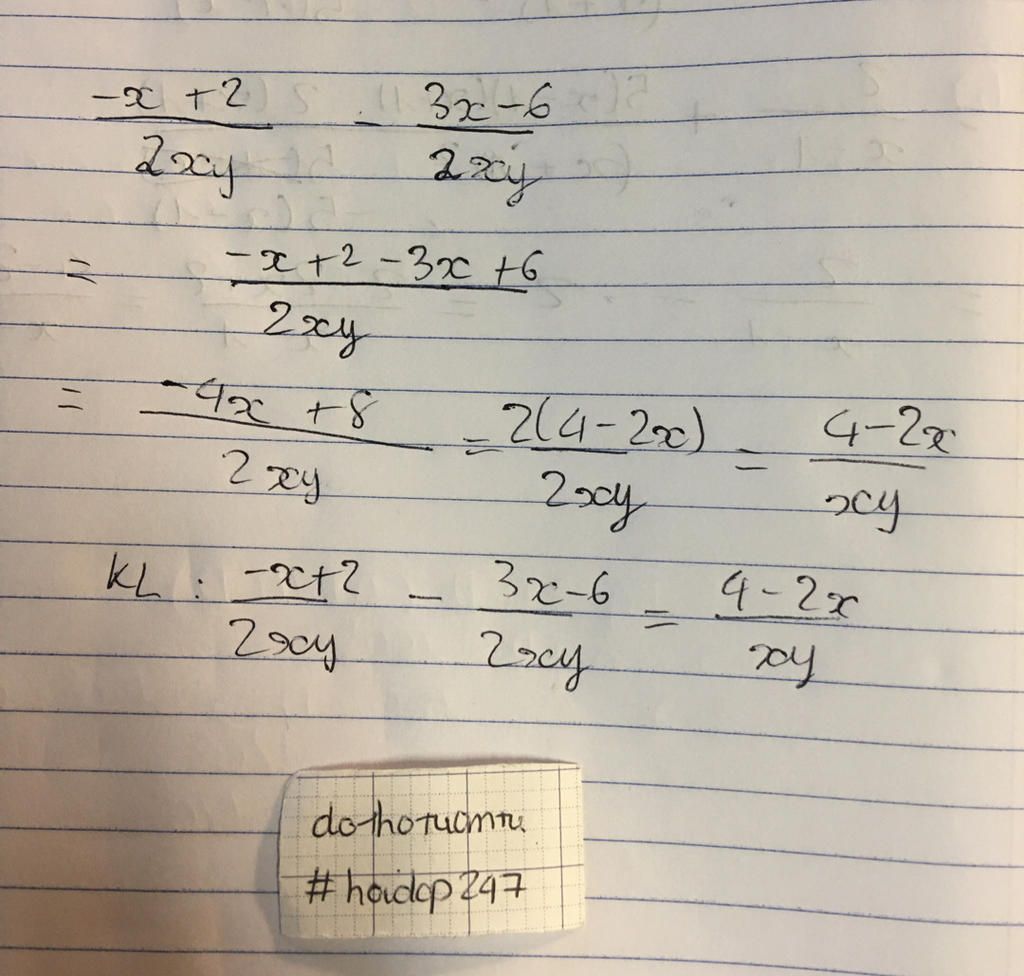 (-x + 2)/(2xy) - (3x - 6)/(2xy)
= (-x + 2 - 3x + 6)/(2xy)
= (-4x + 8)/(2xy) = 2(4 - 2x)/(2xy) = (4 - 2x)/(xy)
KL : (-x + 2)/(2xy) - (3x - 6)/(2xy) = (4 - 2x)/(xy)
#hoidap247